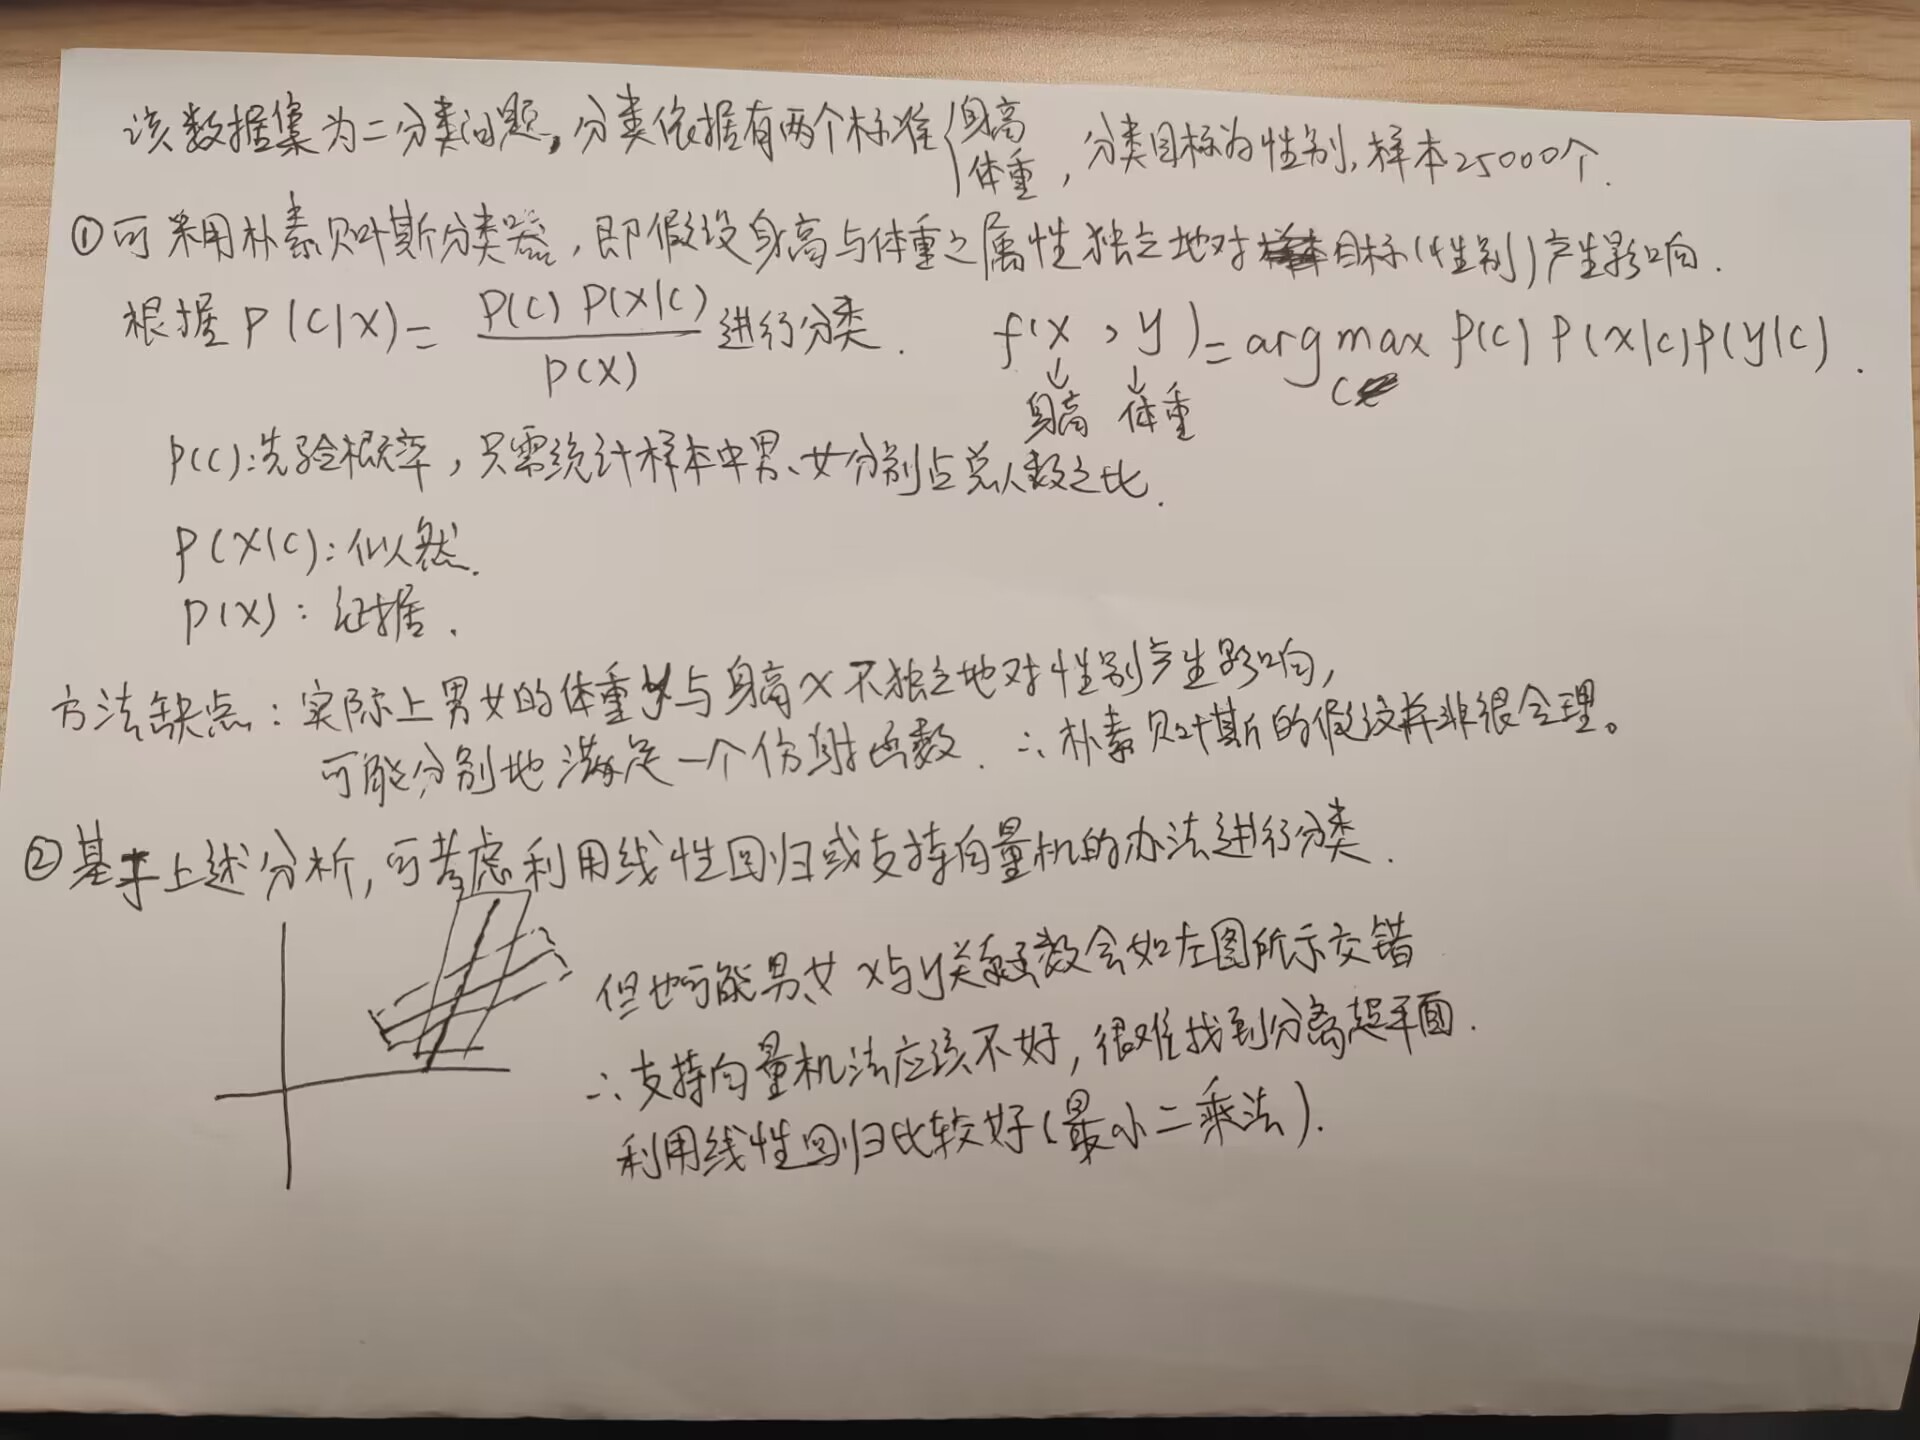 该数据集为二分类问题，分类依据有两个标准{身高 体重，分类目标为性别，样本25000个.
①可采用朴素贝叶斯分类器，即假设身高与体重之属性独立地对目标(性别)产生影响.
根据P(C|X)=P(C)P(X|C)/P(X)进行分类. f(x，y)=arg max P(C)P(x|C)P(y|C).
C
身高 体重
P(C):先验概率，只需统计样本中男、女分别占总人数之比.
P(X|C):似然.
P(X):证据.
方法缺点：实际上男女的体重y与身高x不独立地对性别产生影响，
可能分别地满足一个仿射函数. ∴朴素贝叶斯的假设并非很合理。
②基于上述分析，可考虑利用线性回归或支持向量机的办法进行分类.
但也可能男、女x与y关系函数会如左图所示交错
∴支持向量机法应该不好，很难找到分离超平面.
利用线性回归比较好(最小二乘法).